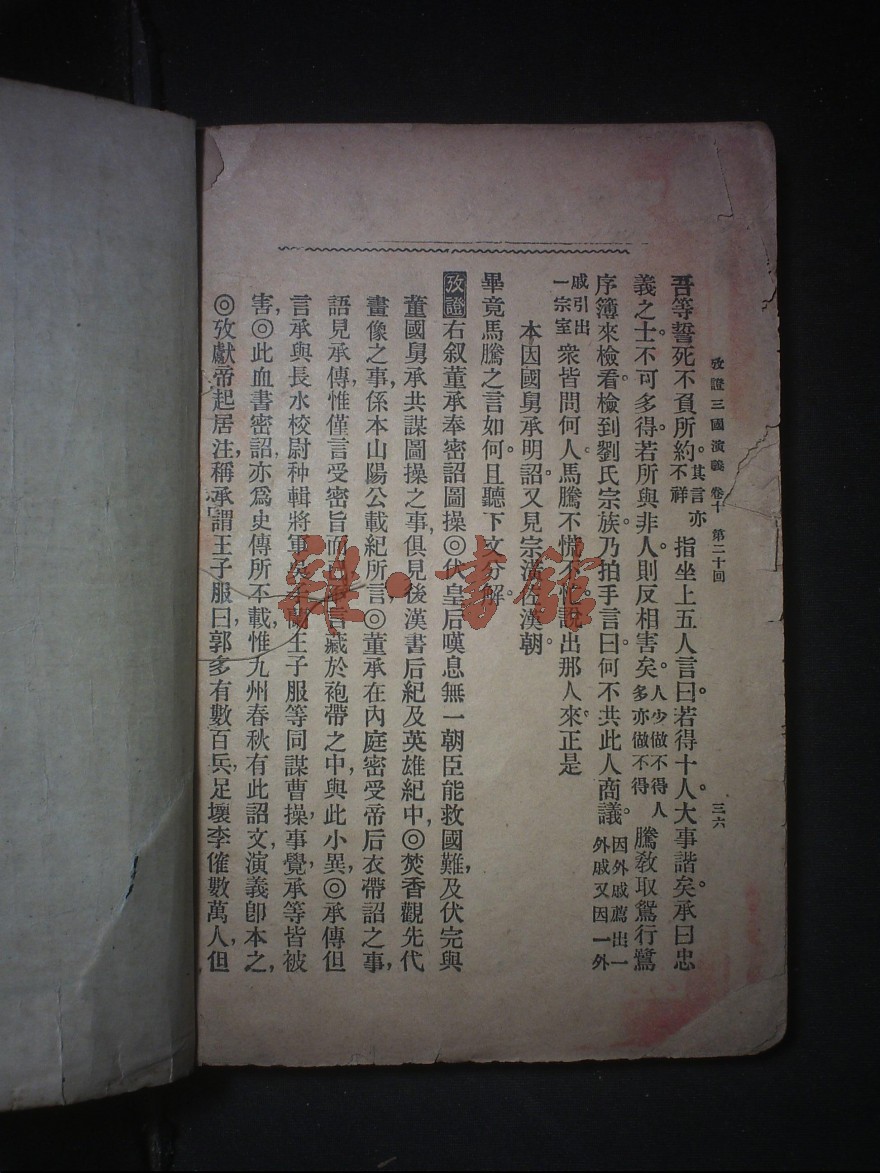 攷證三國演義 卷十 第二十回 三六
吾等誓死不負所約。其言亦不祥 指坐上五人言曰。若得十人。大事諧矣。承曰忠
義之士。不可多得。若所與非人。則反相害矣。人少做不得人多亦做不得 騰敎取鴛行鷺
序簿來檢看。檢到劉氏宗族。乃拍手言曰。何不共此人商議。因外戚薦出一外戚又因一外
戚引出一宗室 衆皆問何人。馬騰不慌不忙說出那人來。正是
本因國舅承明詔。又見宗潢佐漢朝。
畢竟馬騰之言如何。且聽下文分解。
攷證 右叙董承奉密詔圖操◎伏皇后嘆息無一朝臣能救國難，及伏完與
董國舅承共謀圖操之事，俱見後漢書后紀及英雄紀中，◎焚香觀先代
畫像之事，係本山陽公載紀所言◎董承在內庭密受帝后衣帶詔之事，
語見承傳，惟僅言受密旨而 言藏於袍帶之中，與此小異，◎承傳但
言承與長水校尉种輯將軍 王子服等同謀曹操，事覺，承等皆被
害，◎此血書密詔，亦爲史傳所不載，惟九州春秋有此詔文，演義卽本之，
◎攷獻帝起居注，稱承謂王子服曰，郭多有數百兵，足壞李傕數萬人，但
雜·書館